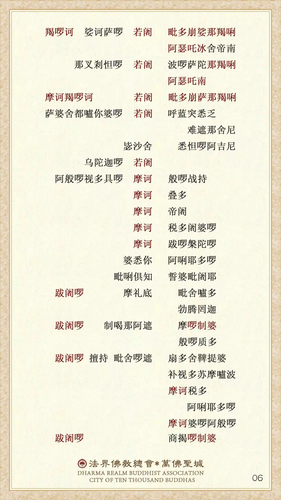 羯啰诃 娑诃萨啰 若阇 毗多崩娑那羯唎
阿瑟吒冰舍帝南
那叉刹怛啰 若阇 波啰萨陀那羯唎
阿瑟吒南
摩诃羯啰诃 若阇 毗多崩萨那羯唎
萨婆舍都嚧你婆啰 若阇 呼蓝突悉乏
难遮那舍尼
毖沙舍 悉怛啰阿吉尼
乌陀迦啰 若阇
阿般啰视多具啰 摩诃 般啰战持
摩诃 叠多
摩诃 帝阇
摩诃 税多阇婆啰
摩诃 跋啰槃陀啰
婆悉你 阿唎耶多啰
毗唎俱知 誓婆毗阇耶
跋阇啰 摩礼底 毗舍嚧多
勃腾罔迦
跋阇啰 制喝那阿遮 摩啰制婆
般啰质多
跋阇啰 擅持 毗舍啰遮 扇多舍鞞提婆
补视多苏摩嚧波
摩诃税多
阿唎耶多啰
摩诃婆啰阿般啰
跋阇啰 商揭啰制婆
法界佛教總會•萬佛聖城
DHARMA REALM BUDDHIST ASSOCIATION
CITY OF TEN THOUSAND BUDDHAS
06